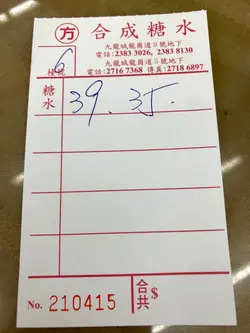 方 合成糖水
九龍城龍崗道9號地下
電話:2383 3026, 2383 8130
九龍城龍崗道5號地下
電話:2716 7368 傳真:2718 6897
檯號 6
糖水 39. 35.
合共 $
No. 210415